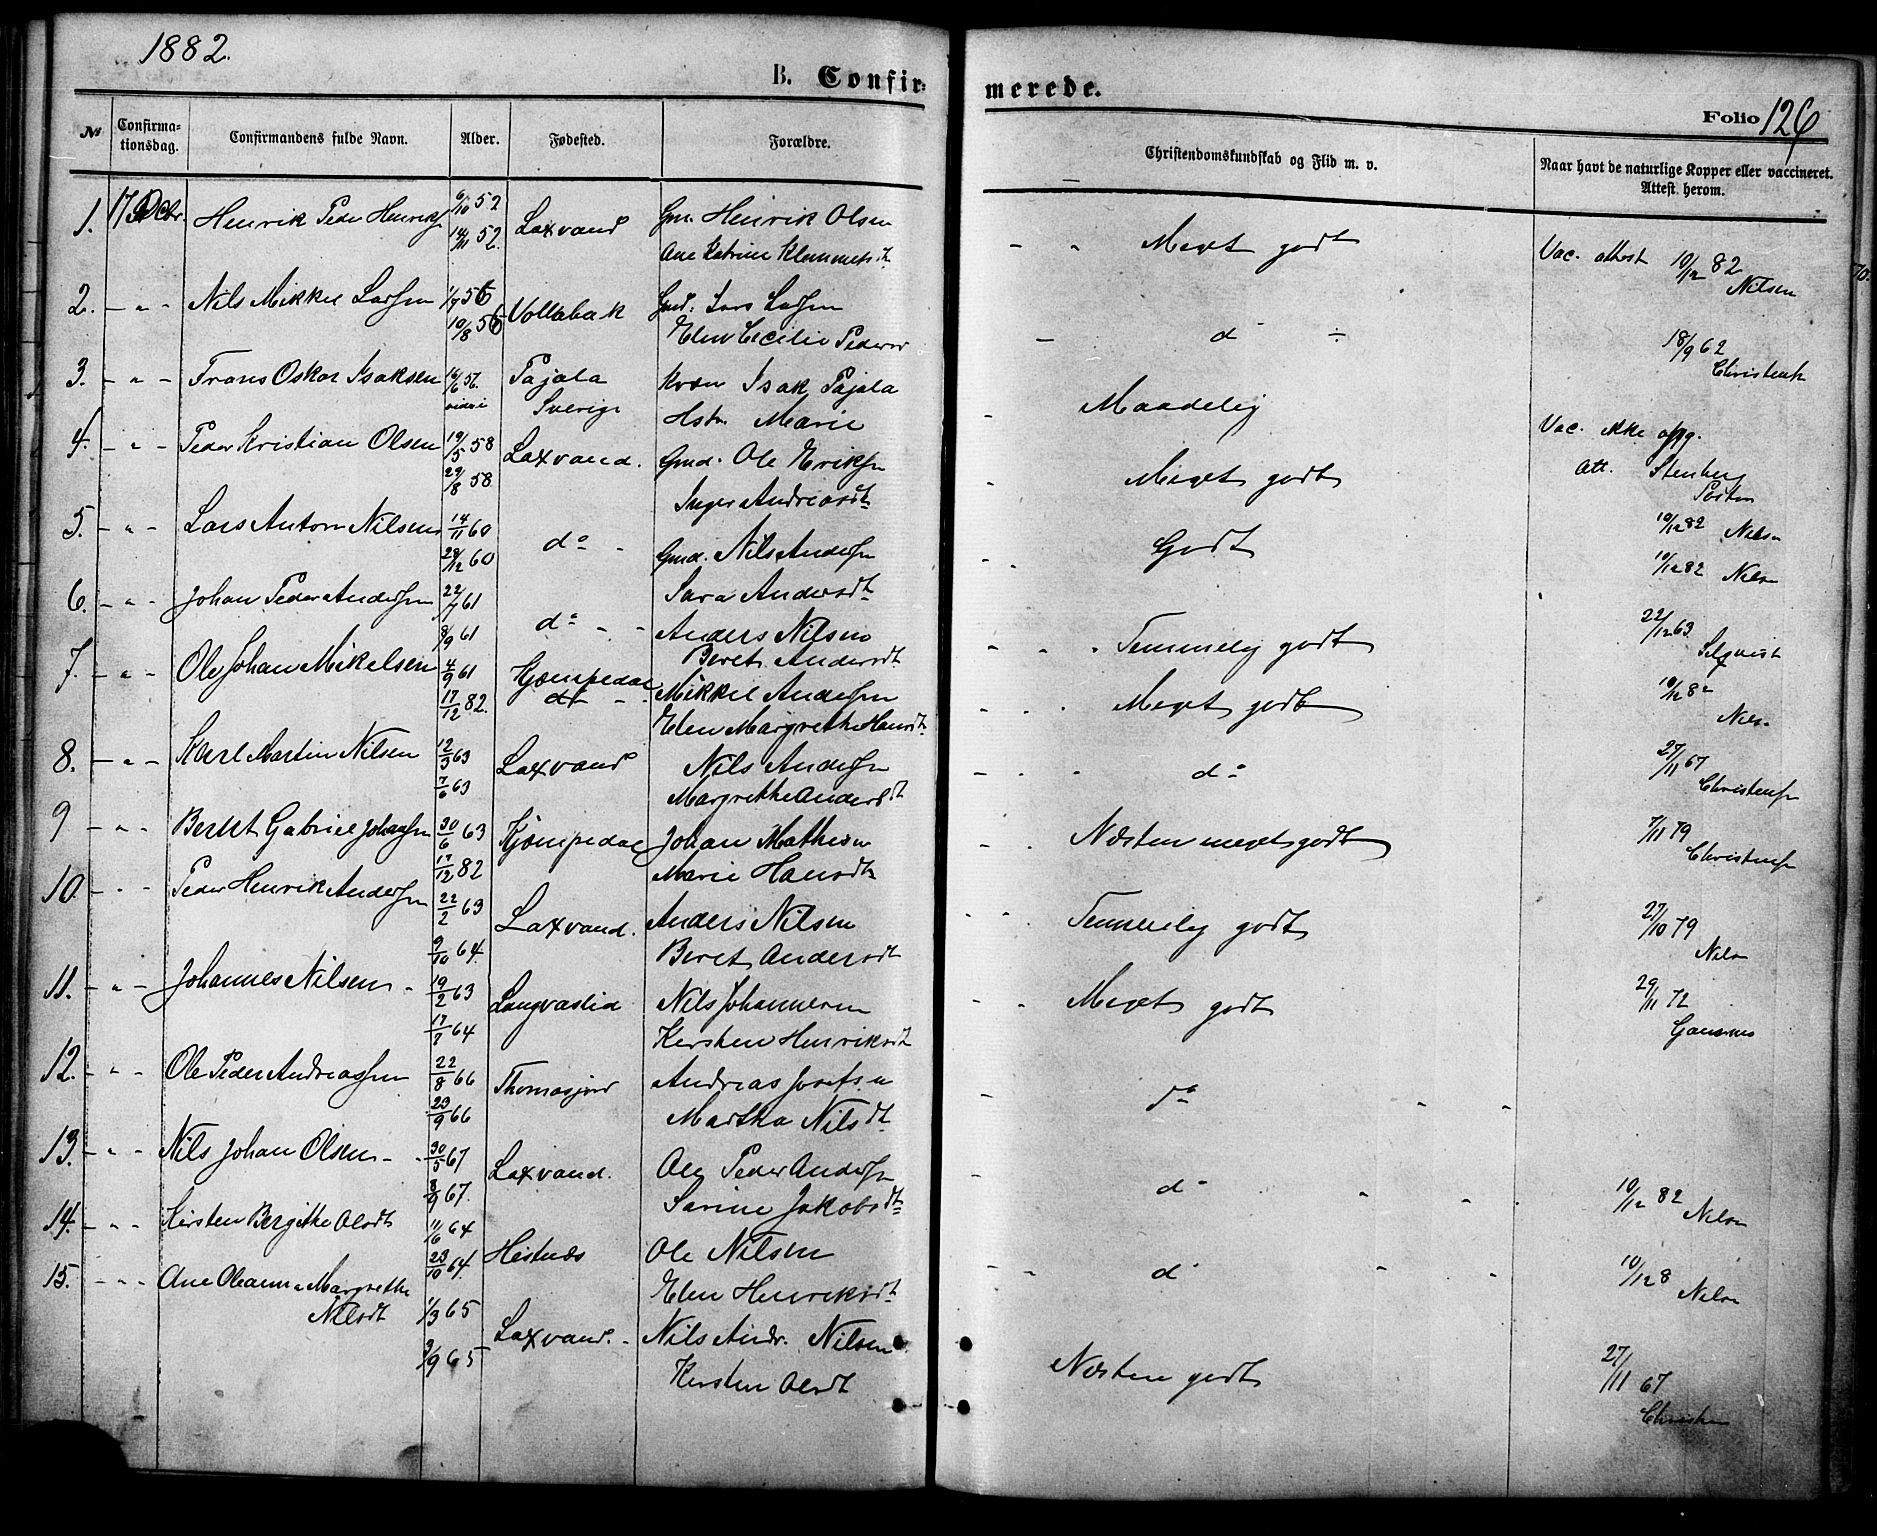 1882.
B. Confir-
merede.
Folio 126
No
Confirma-
tionsdag.
Confirmandens fulde Navn.
Alder.
Fødested.
Forældre.
Christendomskundskab og Flid m. v.
Naar havt de naturlige Kopper eller vaccineret.
Attest herom.
1. 17 Dcbr. Henrik Peder Henriks 6/10 52 Laxvand Gm. Henrik Olsen - - Meget godt Vac. attest 10/12 82
14/11 52 Ane Katrine Klemmetsdt. Nilsen
2. - " - Nils Mikkel Larsen 1/7 56 Vollabak Gmd: Lars Larsen - do - 18/9 62
10/8 56 Elen Cecilie Peder Christens
3. - " - Frans Oskar Isaksen 16/6 57. Pajala Kvæn Isak Pajala - Maadelig
Sverige Hst. Marie Vac. ikke opg.
4. - " - Peder Kristian Olsen 19/5 58 Laxvand. Gmd. Ole Eriksen - Meget godt Att. Stenberg
29/8 58 Inger Andreasdt. Pastor
5. - " - Lars Anton Nilsen 14/11 60 do - Gmd. Nils Andersen - . Godt 10/12 82 Nilsen
28/12 60 Sara Andersdt.
6. - " - Johan Peder Andersen 22/7 61 do - - Anders Nilsen - - . Temmelig godt 10/12 82 Nilsn
8/9 61 Beret Andersdt 22/12 63
7. - " - Ole Johan Mikelsen 4/9 61 Kjæmpedal Mikkel Andersen - . . Meget godt 10/12 82
17/12 82. Elen Margrethe Hansdt. Nils.
8. - " - Karl Martin Nilsen 12/3 63 Laxvand Nils Andersen - . . do 27/11 67
7/6 63 Margrethe Andersdt Christensen
9 - " - Bernt Gabriel Johansen 30/6 63 Kjæmpedal Johan Mathisen - . Næsten meget godt 7/11 79
17/12 82 Marie Hansdt. Christensen
10 - " - Peder Henrik Andersen 22/2 63 Laxvand. Anders Nilsen - . . Temmelig godt 27/10 79
9/10 64. Beret Andersdt Nilsn
11. - " - Johannes Nilsen - 19/2 63 Langvaslid Nils Johannesen - . Meget godt 29/11 72
17/7 64 Kersten Henriksdt
12. - " - Ole Peder Andreassen 22/8 66 Thomasjord Andreas Josefsen - do - -
23/9 66 Martha Nilsdt.
13. - " - Nils Johan Olsen - - 30/5 67 Laxvand. Ole Peder Andersen - do - - 10/12 82
8/9 67. Sarine Jakobsdt. Nilsn
14. - " - Kirsten Bergithe Olsdt 11/6 64 Hestnæs Ole Nilsen - - do - - 10/12 8
23/10 64. Elen Henriksdt Nilsn
15. - " - Ane Oleanna Margrethe
Nilsdt 1/3 65 Laxvand. - Nils Andr. Nilsen Næsten godt 27/11 67
3/9 65 Kersten Olsdt